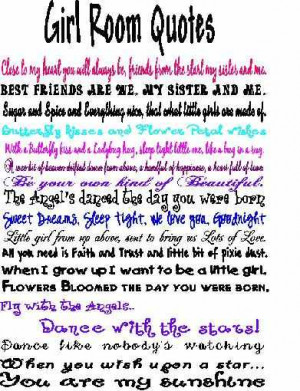 Girl Room Quotes
Close to my heart you will always be, friends from the start my sister and me.
BEST FRIENDS ARE WE, MY SISTER AND ME.
Sugar and Spice and Everything nice, that what little girls are made of.
Butterfly Kisses and Flower Petal Wishes
With a Butterfly kiss and a Ladybug hug, sleep tight little one, like a bug in a rug.
A wee bit of heaven drifted down from above, a handful of happiness, a heart full of love.
Be your own kind of Beautiful.
The Angel's danced the day you were born
Sweet Dreams, Sleep Tight, We love you, Goodnight
Little girl from up above, sent to bring us Lots of Love.
All you need is Faith and Trust and little bit of pixie dust.
When I grow up I want to be a little girl.
FLOWERS BLOOMED THE DAY YOU WERE BORN.
Fly with the Angels..
Dance with the stars!
Dance like nobody's watching
When you wish upon a star...
You are my sunshine